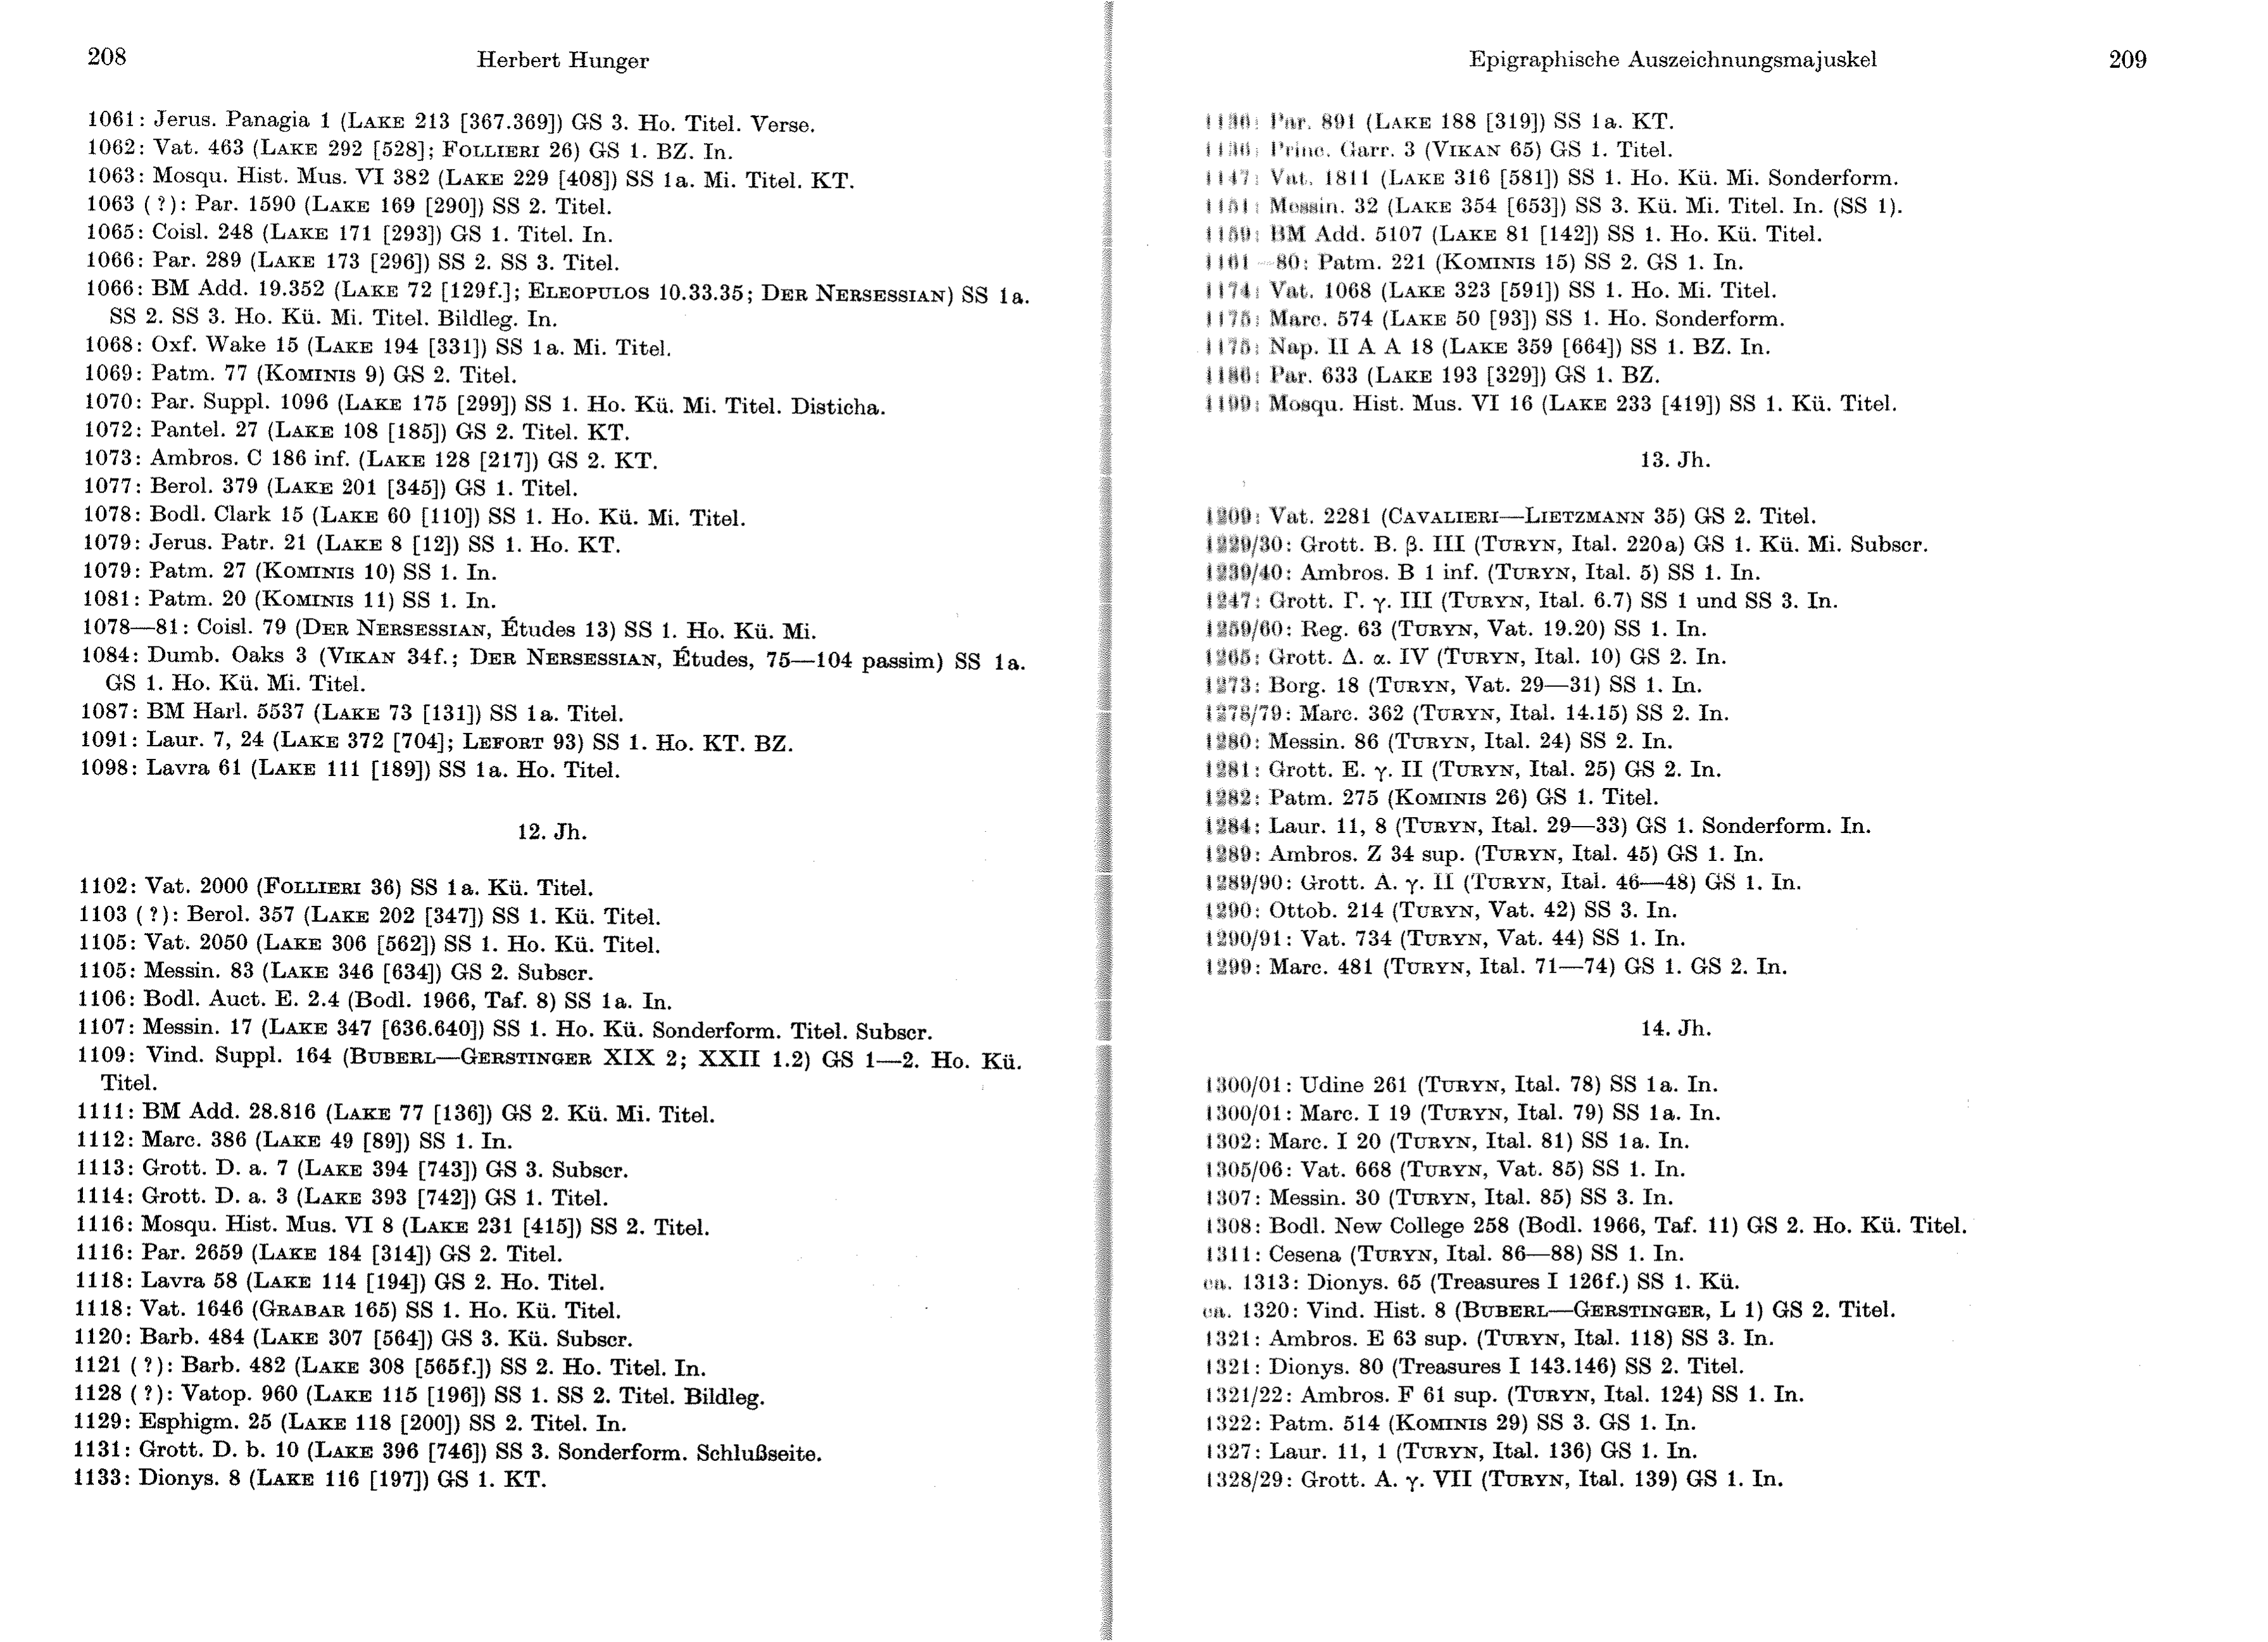 208
Herbert Hunger
1061: Jerus. Panagia 1 (LAKE 213 [367.369]) GS 3. Ho. Titel. Verse.
1062: Vat. 463 (LAKE 292 [528]; FOLLIERI 26) GS 1. BZ. In.
1063: Mosqu. Hist. Mus. VI 382 (LAKE 229 [408]) SS 1a. Mi. Titel. KT.
1063 (?): Par. 1590 (LAKE 169 [290]) SS 2. Titel.
1065: Coisl. 248 (LAKE 171 [293]) GS 1. Titel. In.
1066: Par. 289 (LAKE 173 [296]) SS 2. SS 3. Titel.
1066: BM Add. 19.352 (LAKE 72 [129f.]; ELEOPULOS 10.33.35; DER NERSESSIAN) SS 1a.
SS 2. SS 3. Ho. Kü. Mi. Titel. Bildleg. In.
1068: Oxf. Wake 15 (LAKE 194 [331]) SS 1a. Mi. Titel.
1069: Patm. 77 (KOMINIS 9) GS 2. Titel.
1070: Par. Suppl. 1096 (LAKE 175 [299]) SS 1. Ho. Kü. Mi. Titel. Disticha.
1072: Pantel. 27 (LAKE 108 [185]) GS 2. Titel. KT.
1073: Ambros. C 186 inf. (LAKE 128 [217]) GS 2. KT.
1077: Berol. 379 (LAKE 201 [345]) GS 1. Titel.
1078: Bodl. Clark 15 (LAKE 60 [110]) SS 1. Ho. Kü. Mi. Titel.
1079: Jerus. Patr. 21 (LAKE 8 [12]) SS 1. Ho. KT.
1079: Patm. 27 (KOMINIS 10) SS 1. In.
1081: Patm. 20 (KOMINIS 11) SS 1. In.
1078—81: Coisl. 79 (DER NERSESSIAN, Études 13) SS 1. Ho. Kü. Mi.
1084: Dumb. Oaks 3 (VIKAN 34f.; DER NERSESSIAN, Études, 75—104 passim) SS 1a.
GS 1. Ho. Kü. Mi. Titel.
1087: BM Harl. 5537 (LAKE 73 [131]) SS 1a. Titel.
1091: Laur. 7, 24 (LAKE 372 [704]; LEFORT 93) SS 1. Ho. KT. BZ.
1098: Lavra 61 (LAKE 111 [189]) SS 1a. Ho. Titel.
12. Jh.
1102: Vat. 2000 (FOLLIERI 36) SS 1a. Kü. Titel.
1103 (?): Berol. 357 (LAKE 202 [347]) SS 1. Kü. Titel.
1105: Vat. 2050 (LAKE 306 [562]) SS 1. Ho. Kü. Titel.
1105: Messin. 83 (LAKE 346 [634]) GS 2. Subscr.
1106: Bodl. Auct. E. 2.4 (Bodl. 1966, Taf. 8) SS 1a. In.
1107: Messin. 17 (LAKE 347 [636.640]) SS 1. Ho. Kü. Sonderform. Titel. Subscr.
1109: Vind. Suppl. 164 (BUBERL—GERSTINGER XIX 2; XXII 1.2) GS 1—2. Ho. Kü.
Titel.
1111: BM Add. 28.816 (LAKE 77 [136]) GS 2. Kü. Mi. Titel.
1112: Marc. 386 (LAKE 49 [89]) SS 1. In.
1113: Grott. D. a. 7 (LAKE 394 [743]) GS 3. Subscr.
1114: Grott. D. a. 3 (LAKE 393 [742]) GS 1. Titel.
1116: Mosqu. Hist. Mus. VI 8 (LAKE 231 [415]) SS 2. Titel.
1116: Par. 2659 (LAKE 184 [314]) GS 2. Titel.
1118: Lavra 58 (LAKE 114 [194]) GS 2. Ho. Titel.
1118: Vat. 1646 (GRABAR 165) SS 1. Ho. Kü. Titel.
1120: Barb. 484 (LAKE 307 [564]) GS 3. Kü. Subscr.
1121 (?): Barb. 482 (LAKE 308 [565f.]) SS 2. Ho. Titel. In.
1128 (?): Vatop. 960 (LAKE 115 [196]) SS 1. SS 2. Titel. Bildleg.
1129: Esphigm. 25 (LAKE 118 [200]) SS 2. Titel. In.
1131: Grott. D. b. 10 (LAKE 396 [746]) SS 3. Sonderform. Schlußseite.
1133: Dionys. 8 (LAKE 116 [197]) GS 1. KT.
Epigraphische Auszeichnungsmajuskel
209
Par. 891 (LAKE 188 [319]) SS 1a. KT.
Princ. Garr. 3 (VIKAN 65) GS 1. Titel.
1147: Vat. 1811 (LAKE 316 [581]) SS 1. Ho. Kü. Mi. Sonderform.
Messin. 32 (LAKE 354 [653]) SS 3. Kü. Mi. Titel. In. (SS 1).
1159: BM Add. 5107 (LAKE 81 [142]) SS 1. Ho. Kü. Titel.
1161—80: Patm. 221 (KOMINIS 15) SS 2. GS 1. In.
1174: Vat. 1068 (LAKE 323 [591]) SS 1. Ho. Mi. Titel.
1175: Marc. 574 (LAKE 50 [93]) SS 1. Ho. Sonderform.
1175: Nap. II A A 18 (LAKE 359 [664]) SS 1. BZ. In.
1186: Par. 633 (LAKE 193 [329]) GS 1. BZ.
1199: Mosqu. Hist. Mus. VI 16 (LAKE 233 [419]) SS 1. Kü. Titel.
13. Jh.
1209: Vat. 2281 (CAVALIERI—LIETZMANN 35) GS 2. Titel.
1229/30: Grott. B. β. III (TURYN, Ital. 220a) GS 1. Kü. Mi. Subscr.
1239/40: Ambros. B 1 inf. (TURYN, Ital. 5) SS 1. In.
1247: Grott. Γ. γ. III (TURYN, Ital. 6.7) SS 1 und SS 3. In.
1259/60: Reg. 63 (TURYN, Vat. 19.20) SS 1. In.
1265: Grott. Δ. α. IV (TURYN, Ital. 10) GS 2. In.
1273: Borg. 18 (TURYN, Vat. 29—31) SS 1. In.
1278/79: Marc. 362 (TURYN, Ital. 14.15) SS 2. In.
1280: Messin. 86 (TURYN, Ital. 24) SS 2. In.
1281: Grott. E. γ. II (TURYN, Ital. 25) GS 2. In.
1282: Patm. 275 (KOMINIS 26) GS 1. Titel.
1284: Laur. 11, 8 (TURYN, Ital. 29—33) GS 1. Sonderform. In.
1289: Ambros. Z 34 sup. (TURYN, Ital. 45) GS 1. In.
1289/90: Grott. A. γ. II (TURYN, Ital. 46—48) GS 1. In.
1290: Ottob. 214 (TURYN, Vat. 42) SS 3. In.
1290/91: Vat. 734 (TURYN, Vat. 44) SS 1. In.
1299: Marc. 481 (TURYN, Ital. 71—74) GS 1. GS 2. In.
14. Jh.
1300/01: Udine 261 (TURYN, Ital. 78) SS 1a. In.
1300/01: Marc. I 19 (TURYN, Ital. 79) SS 1a. In.
1302: Marc. I 20 (TURYN, Ital. 81) SS 1a. In.
1305/06: Vat. 668 (TURYN, Vat. 85) SS 1. In.
1307: Messin. 30 (TURYN, Ital. 85) SS 3. In.
1308: Bodl. New College 258 (Bodl. 1966, Taf. 11) GS 2. Ho. Kü. Titel.
1311: Cesena (TURYN, Ital. 86—88) SS 1. In.
ca. 1313: Dionys. 65 (Treasures I 126f.) SS 1. Kü.
ca. 1320: Vind. Hist. 8 (BUBERL—GERSTINGER, L 1) GS 2. Titel.
1321: Ambros. E 63 sup. (TURYN, Ital. 118) SS 3. In.
1321: Dionys. 80 (Treasures I 143.146) SS 2. Titel.
1321/22: Ambros. F 61 sup. (TURYN, Ital. 124) SS 1. In.
1322: Patm. 514 (KOMINIS 29) SS 3. GS 1. In.
1327: Laur. 11, 1 (TURYN, Ital. 136) GS 1. In.
1328/29: Grott. A. γ. VII (TURYN, Ital. 139) GS 1. In.